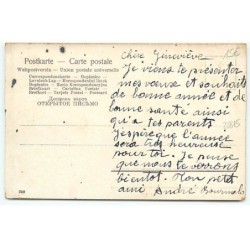 Postkarte - Carte postale
Weltpostverein - Union postale universelle
Correspondenzkarte - Dopisnice
Levelező-Lap - Korespondenční lístek
Briefkaart - Cartolina Postale
Brefkort - Brevkort - Tarjeta Postal
ОТКРЫТОЕ ПИСЬМО
Chère Geneviève
Je viens te présenter
mes vœux et souhaits
de bonne année et de
bonne santé ainsi
qu'à tes parents
J'espère que l'année
sera très heureuse
pour toi. Je pense
que nous te verrons
bientôt. Ton petit
ami André